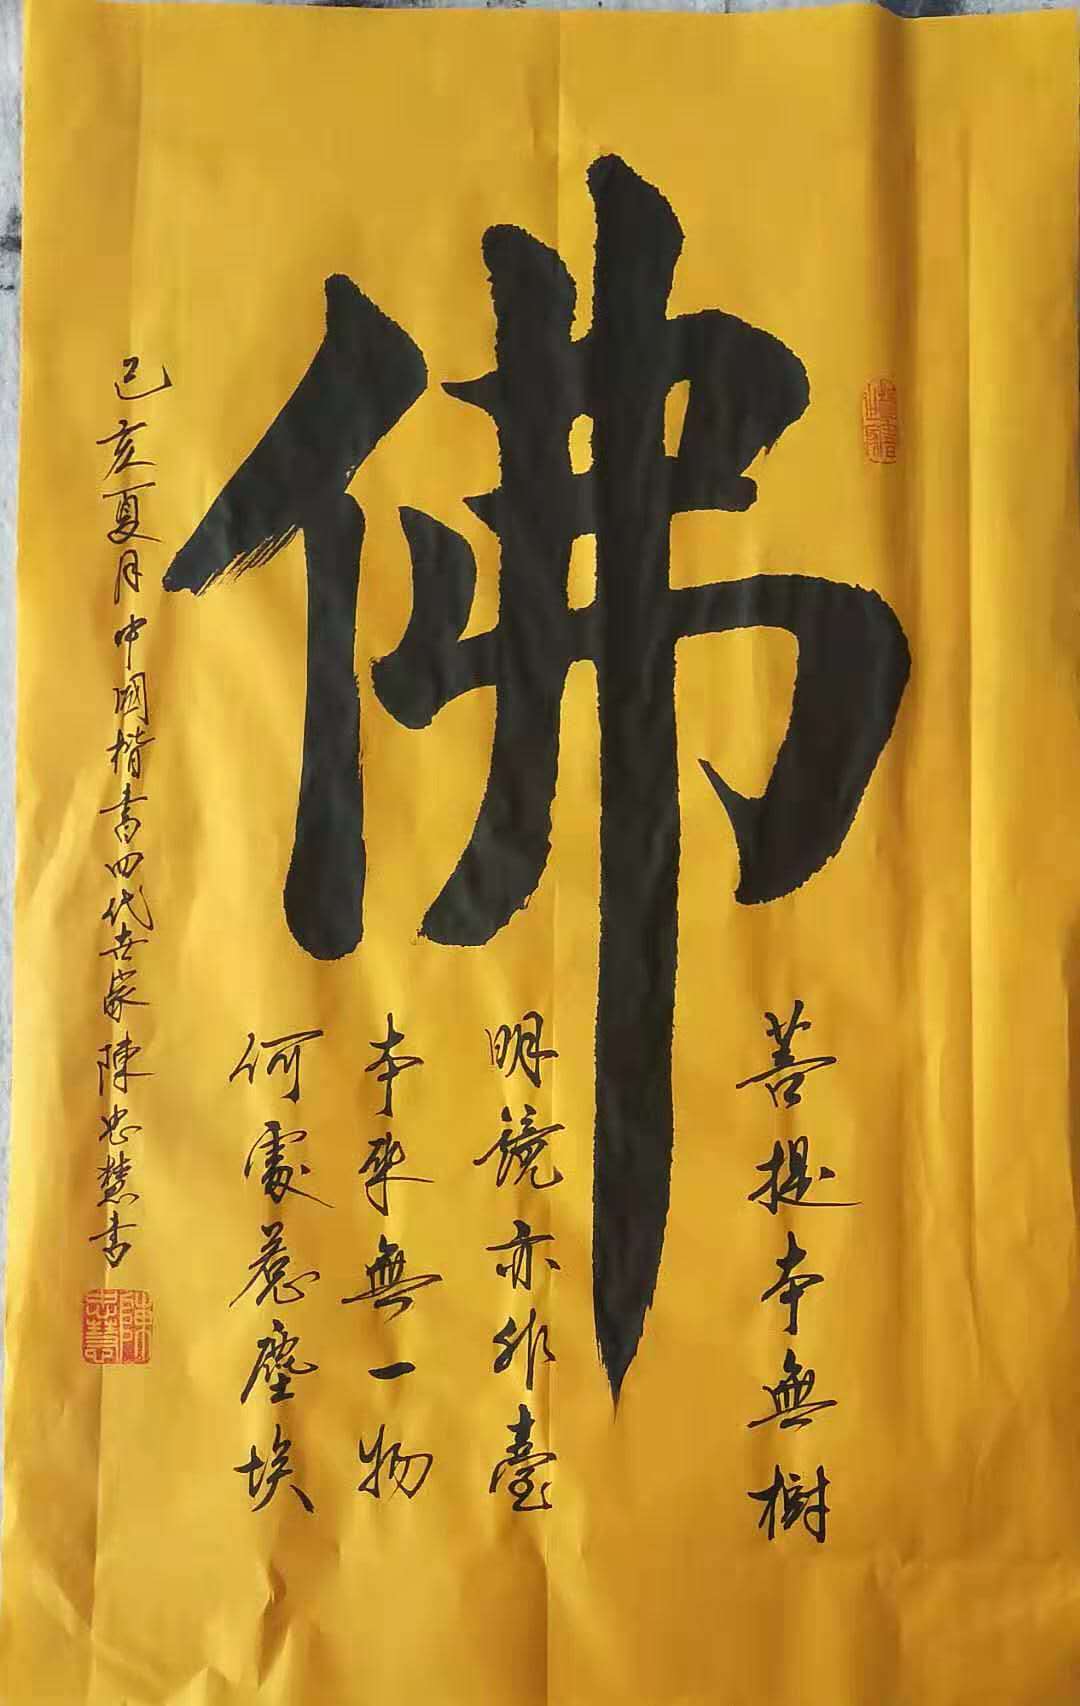 佛
菩提本無樹
明鏡亦非臺
本來無一物
何處惹塵埃
己亥夏月中國楷書四代世家陳忠慧書
陳忠慧